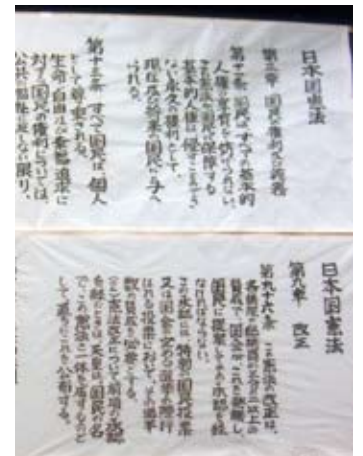 日本国憲法
第三章 国民の権利及び義務
第十一条 国民は、すべての基本的
人権の享有を妨げられない。
この憲法が国民に保障する
基本的人権は、侵すことのでき
ない永久の権利として、
現在及び将来の国民に与へ
られる。
第十三条 すべて国民は、個人
として尊重される。
生命、自由及び幸福追求に
対する国民の権利については、
公共の福祉に反しない限り、
日本国憲法
第九章 改正
第九十六条 この憲法の改正は、
各議院の総議員の三分の二以上の
賛成で、国会が、これを発議し、
国民に提案してその承認を経
なければならない。
この承認には、特別の国民投票
又は国会の定める選挙の際行
はれる投票において、その過半
数の賛成を必要とする。
(2)憲法改正について前項の承認
を経たときは、天皇は、国民の名
で、この憲法と一体を成すものと
して、直ちにこれを公布する。